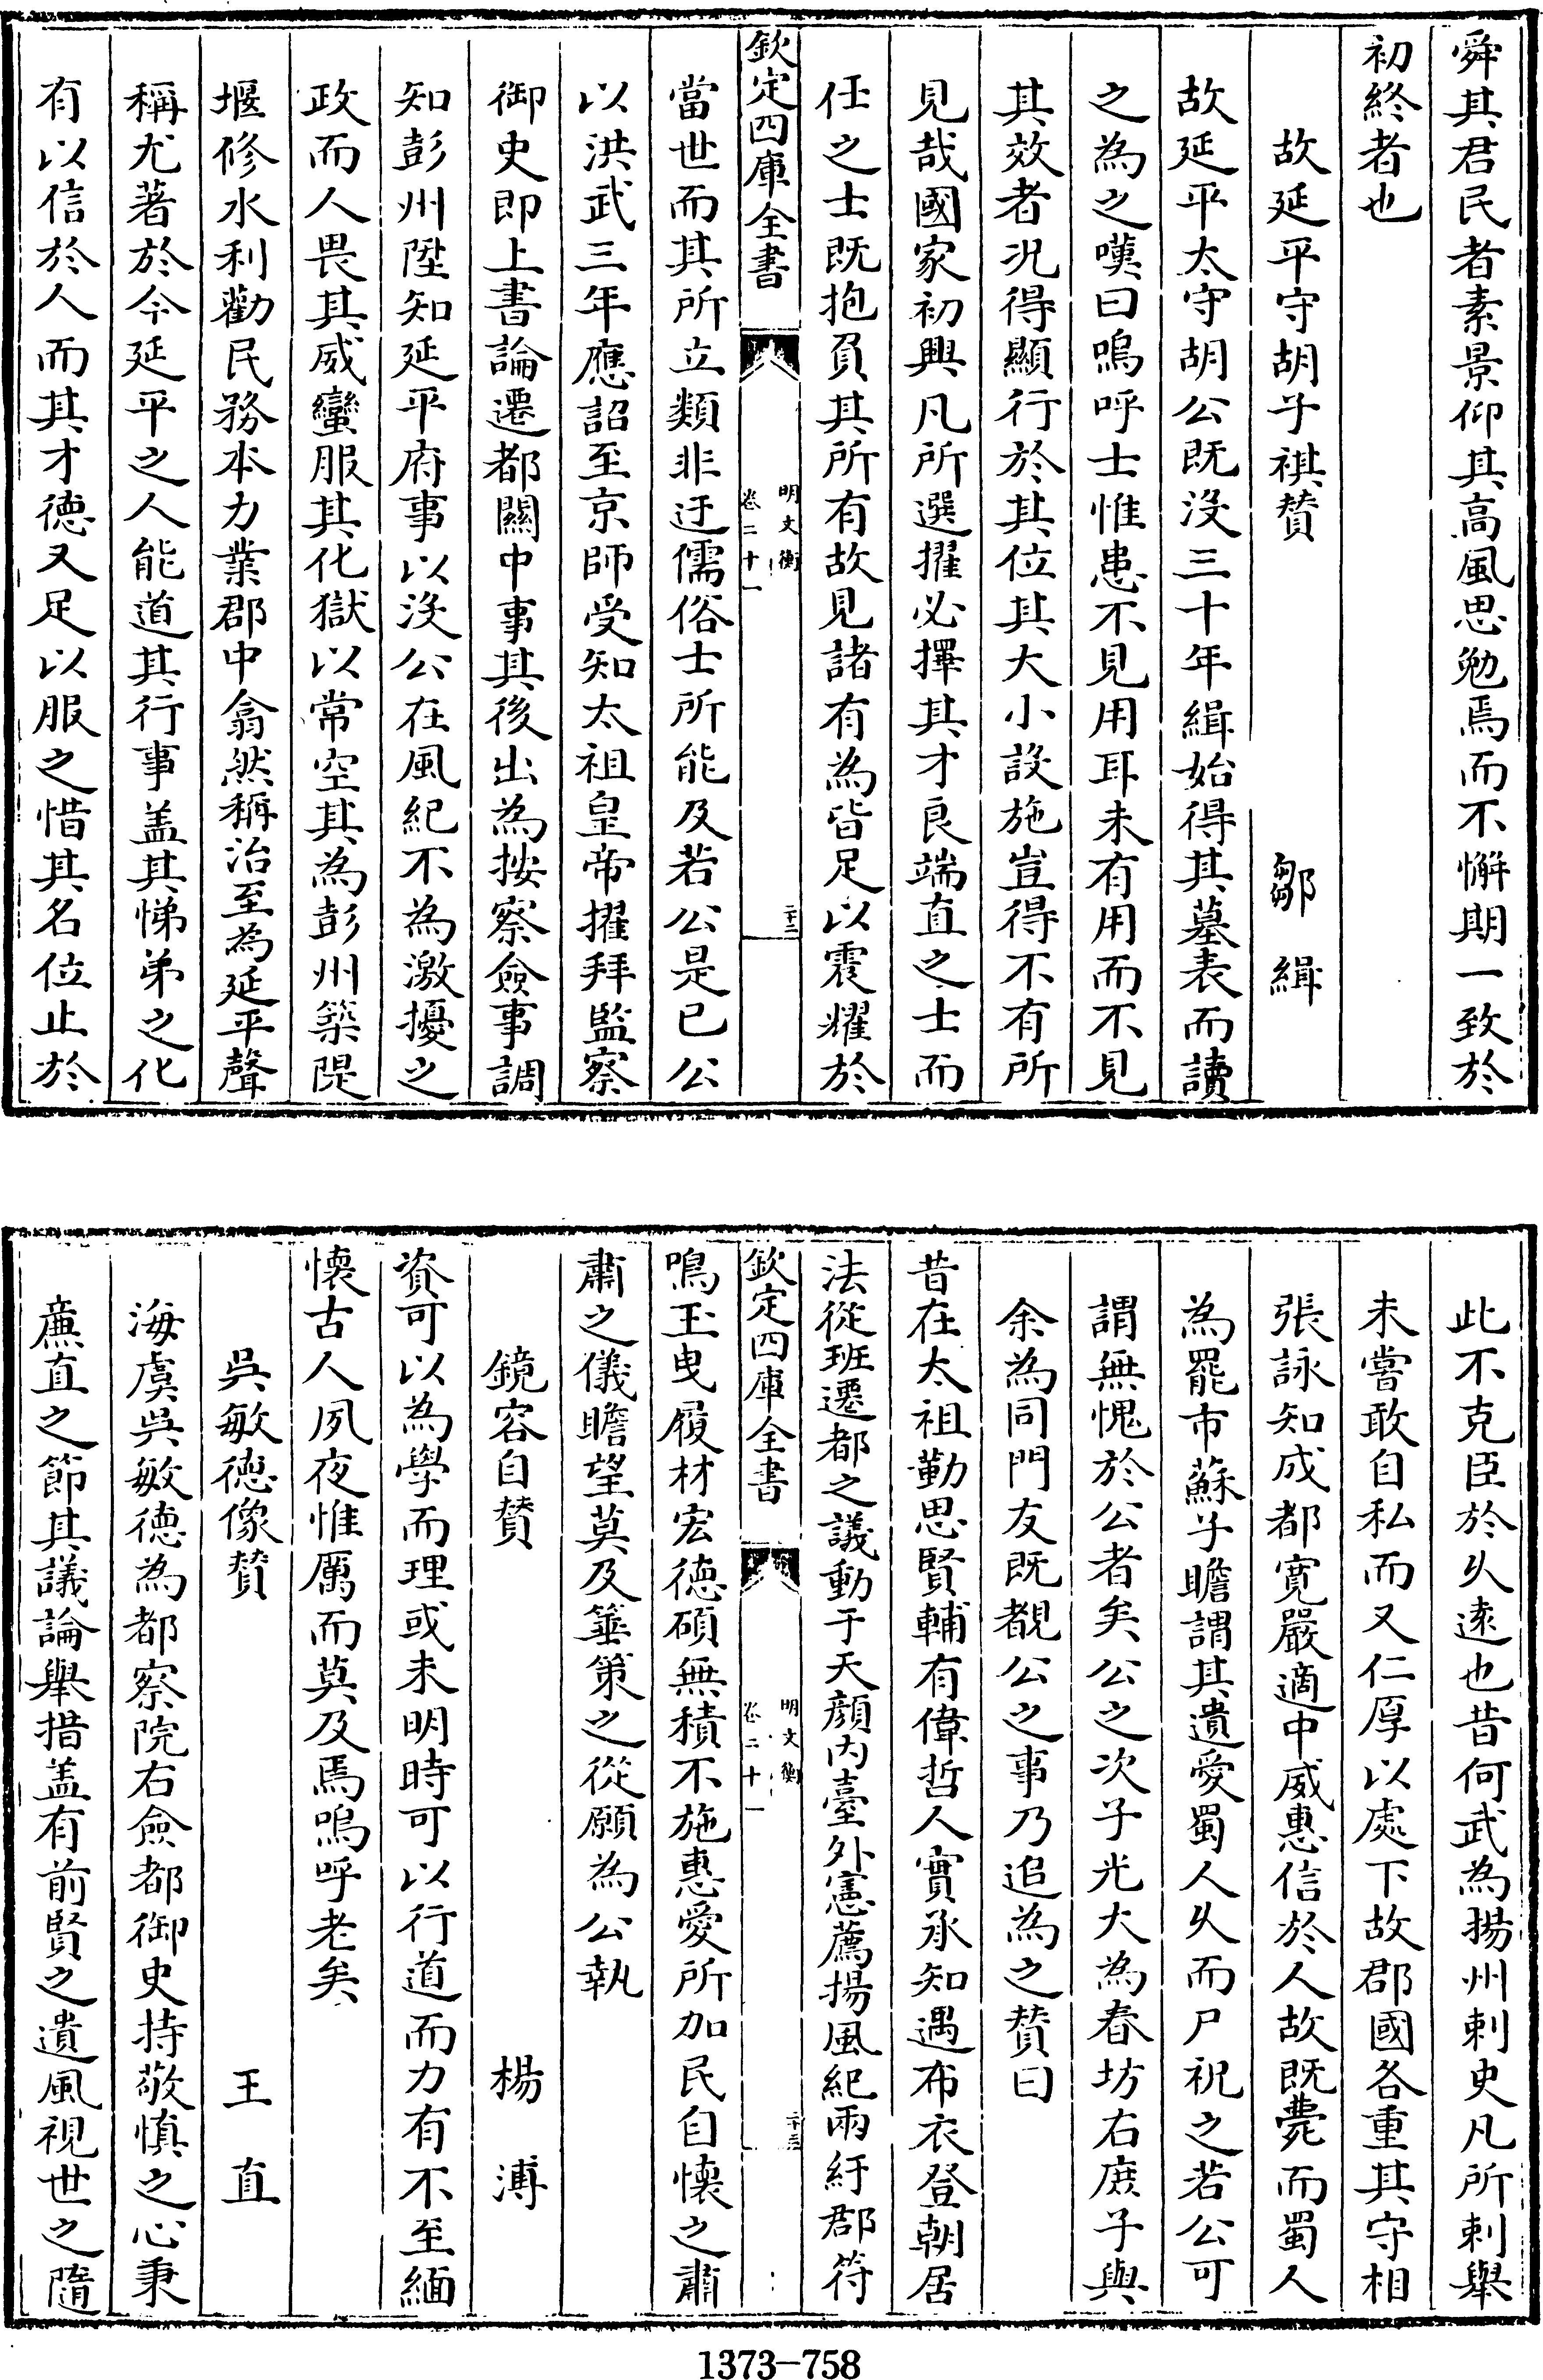 舜其君民者素景仰其高風思勉焉而不懈期一致於
初終者也
故延平守胡子祺賛 鄒緝
故延平太守胡公既沒三十年緝始得其墓表而讀
之為之嘆曰嗚呼士惟患不見用耳未有用而不見
其效者况得顯行於其位其大小設施豈得不有所
見哉國家初興凡所選擢必擇其才良端直之士而
任之士既抱負其所有故見諸有為皆足以震耀於
欽定四庫全書 明文衡 卷二十一 二十二
當世而其所立類非迂儒俗士所能及若公是已公
以洪武三年應詔至京師受知太祖皇帝擢拜監察
御史即上書論遷都關中事其後出為按察僉事調
知彭州陞知延平府事以沒公在風紀不為激擾之
政而人畏其威蠻服其化獄以常空其為彭州築隄
堰修水利勸民務本力業郡中翕然稱治至為延平聲
稱尤著於今延平之人能道其行事盖其悌弟之化
有以信於人而其才德又足以服之惜其名位止於
此不克臣於乆逺也昔何武為揚州刺史凡所刺舉
未嘗敢自私而又仁厚以處下故郡國各重其守相
張詠知成都寛嚴適中威惠信於人故既薨而蜀人
為罷市蘇子瞻謂其遺愛蜀人乆而尸祝之若公可
謂無愧於公者矣公之次子光大為春坊右庶子與
余為同門友既覩公之事乃追為之賛曰
昔在太祖勤思賢輔有偉哲人實承知遇布衣登朝居
法從班遷都之議動于天顔内臺外憲薦揚風紀兩紆郡符
欽定四庫全書 明文衡 卷二十一 二十三
鳴玉曳履材宏德碩無積不施惠愛所加民自懷之肅
肅之儀瞻望莫及箠策之從願為公執
鏡容自賛 楊溥
資可以為學而理或未明時可以行道而力有不至緬
懐古人夙夜惟厲而莫及焉嗚呼老矣
吳敏徳像賛 王直
海虞吳敏德為都察院右僉都御史持敬慎之心秉
亷直之節其議論舉措盖有前賢之遺風視世之隨
1373-758